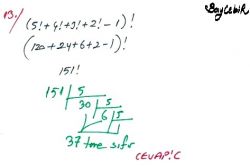 13./
BayÇebir
(5!+4!+3!+2!-1)!
(120+24+6+2-1)!
151!
151 | 5
30 | 5
6 | 5
1
37 tane sıfır
CEVAP!C